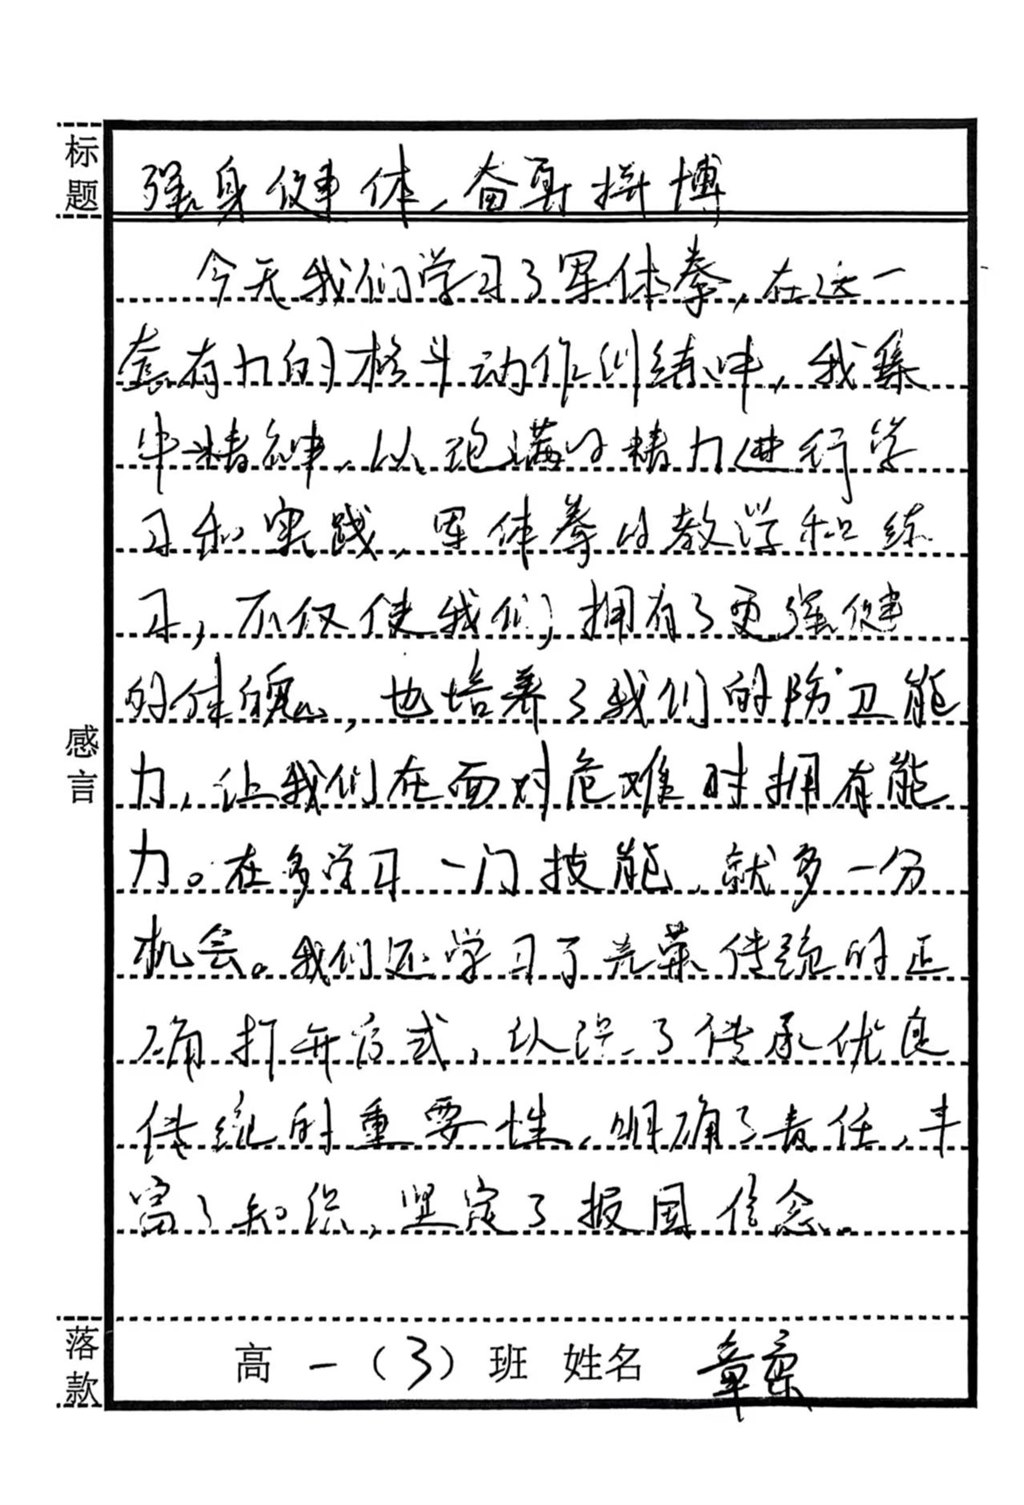 标题
强身健体，奋勇拼博
今天我们学习了军体拳，在这一
套有力的格斗动作训练中，我集
中精神，以饱满的精力进行学
习和实践，军体拳的教学和练
习，不仅使我们，拥有了更强健
的体魄，也培养了我们的防卫能
感言
力，让我们在面对危难时拥有能
力。在多学习一门技能，就多一分
机会。我们还学习了光荣传统的正
确打开方式，认识了传承优良
传统的重要性，明确了责任，丰
富了知识，坚定了报国信念。
落款
高一（3）班 姓名 章